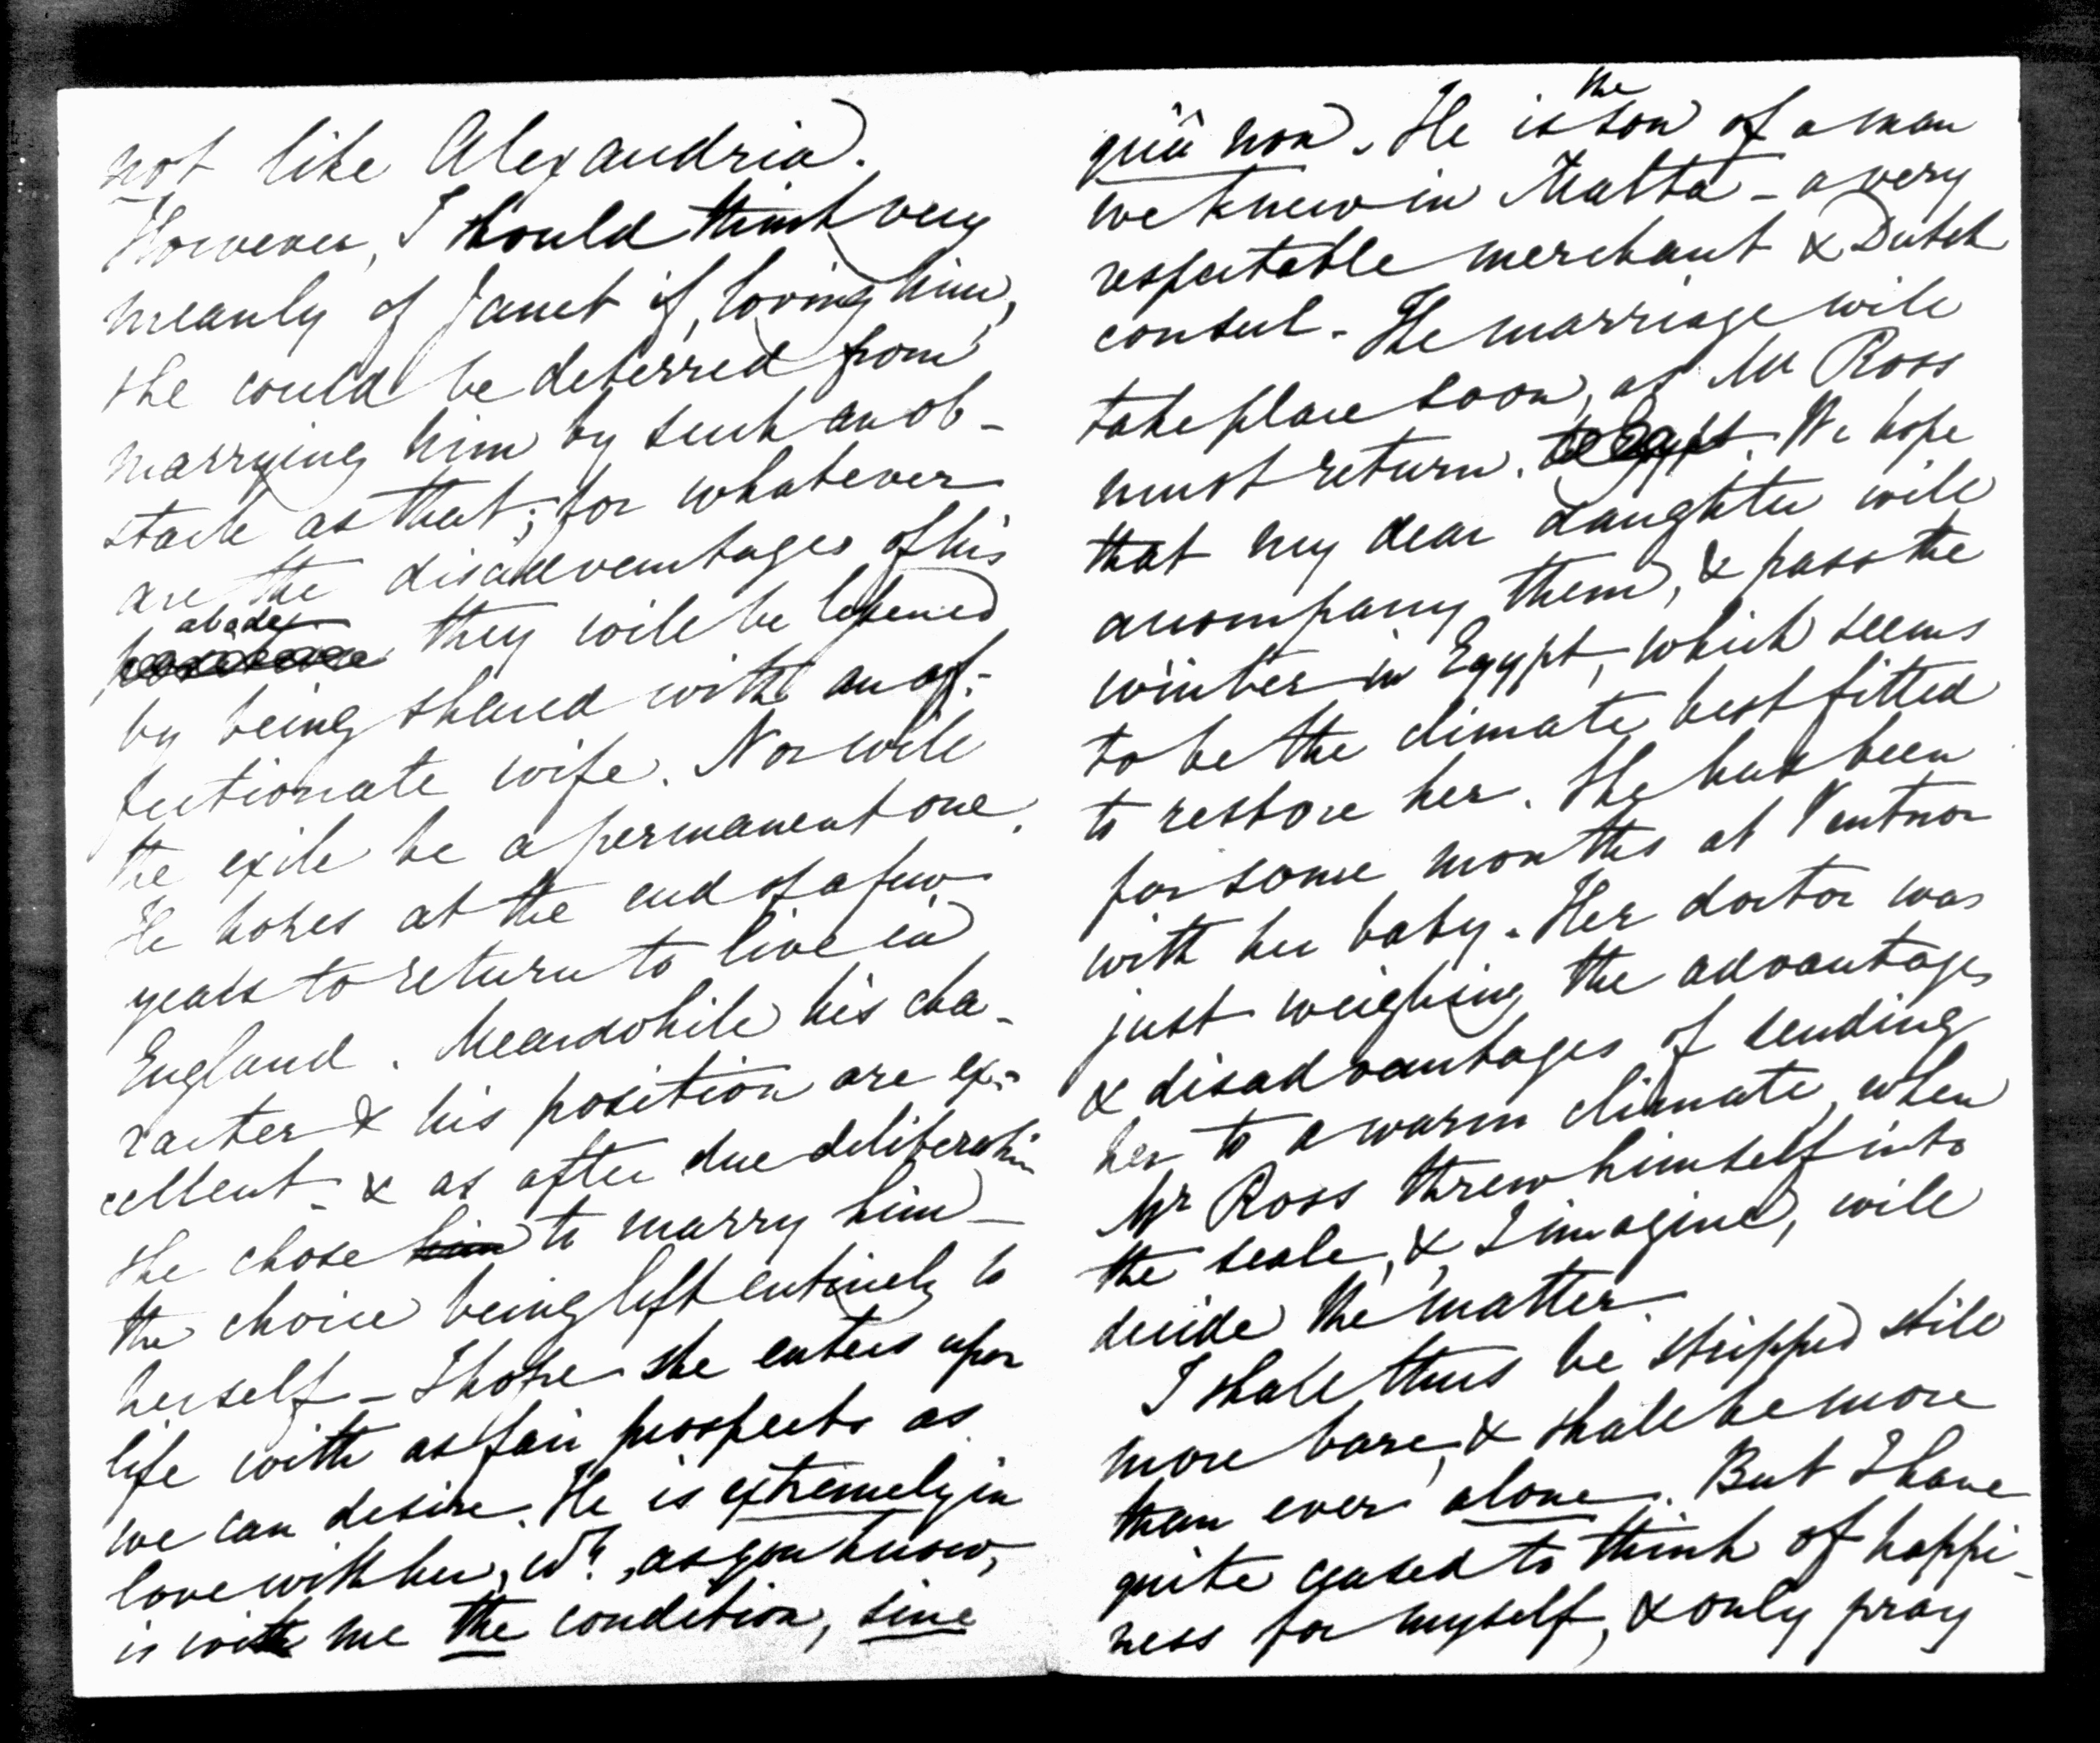 not like Alexandria.
However, I should think very
meanly of Janet if, loving him,
she could be deterred from
marrying him by such an ob-
stacle as that; for whatever
are the disadvantages of his
abode, they will be lessened
by being shared with an af-
fectionate wife. Nor will
the exile be a permanent one.
He hopes at the end of a few
years to return to live in
England. Meanwhile his cha-
racter & his position are ex-
cellent - & as after due deliberation
she chose him to marry him -
the choice being left entirely to
herself - I hope she enters upon
life with as fair prospects as
we can desire. He is extremely in
love with her, wh, as you know,
is with me the condition, sine
quâ non. He is the son of a man
we knew in Malta - a very
respectable merchant & Dutch
consul. The marriage will
take place soon, as Mr Ross
must return. to Egypt. We hope
that my dear daughter will
accompany them, & pass the
winter in Egypt, which seems
to be the climate best fitted
to restore her. She has been
for some months at Ventnor
with her baby. Her doctor was
just weighing the advantages
& disadvantages of sending
her to a warm climate, when
Mr Ross threw himself into
the scale, &, I imagine, will
decide the matter.
I shall thus be stripped still
more bare, & shall be more
than ever alone. But I have
quite ceased to think of happi-
ness for myself, & only pray